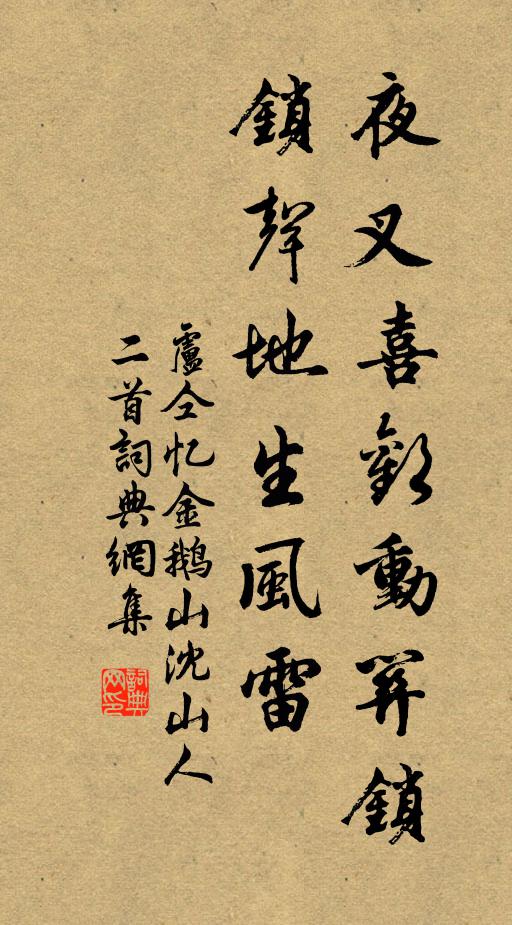 夜叉喜歡動關鎖
鎖聲地生風雷
盧仝忆金鵝山沈山人
二首詞典網集
詞典网印